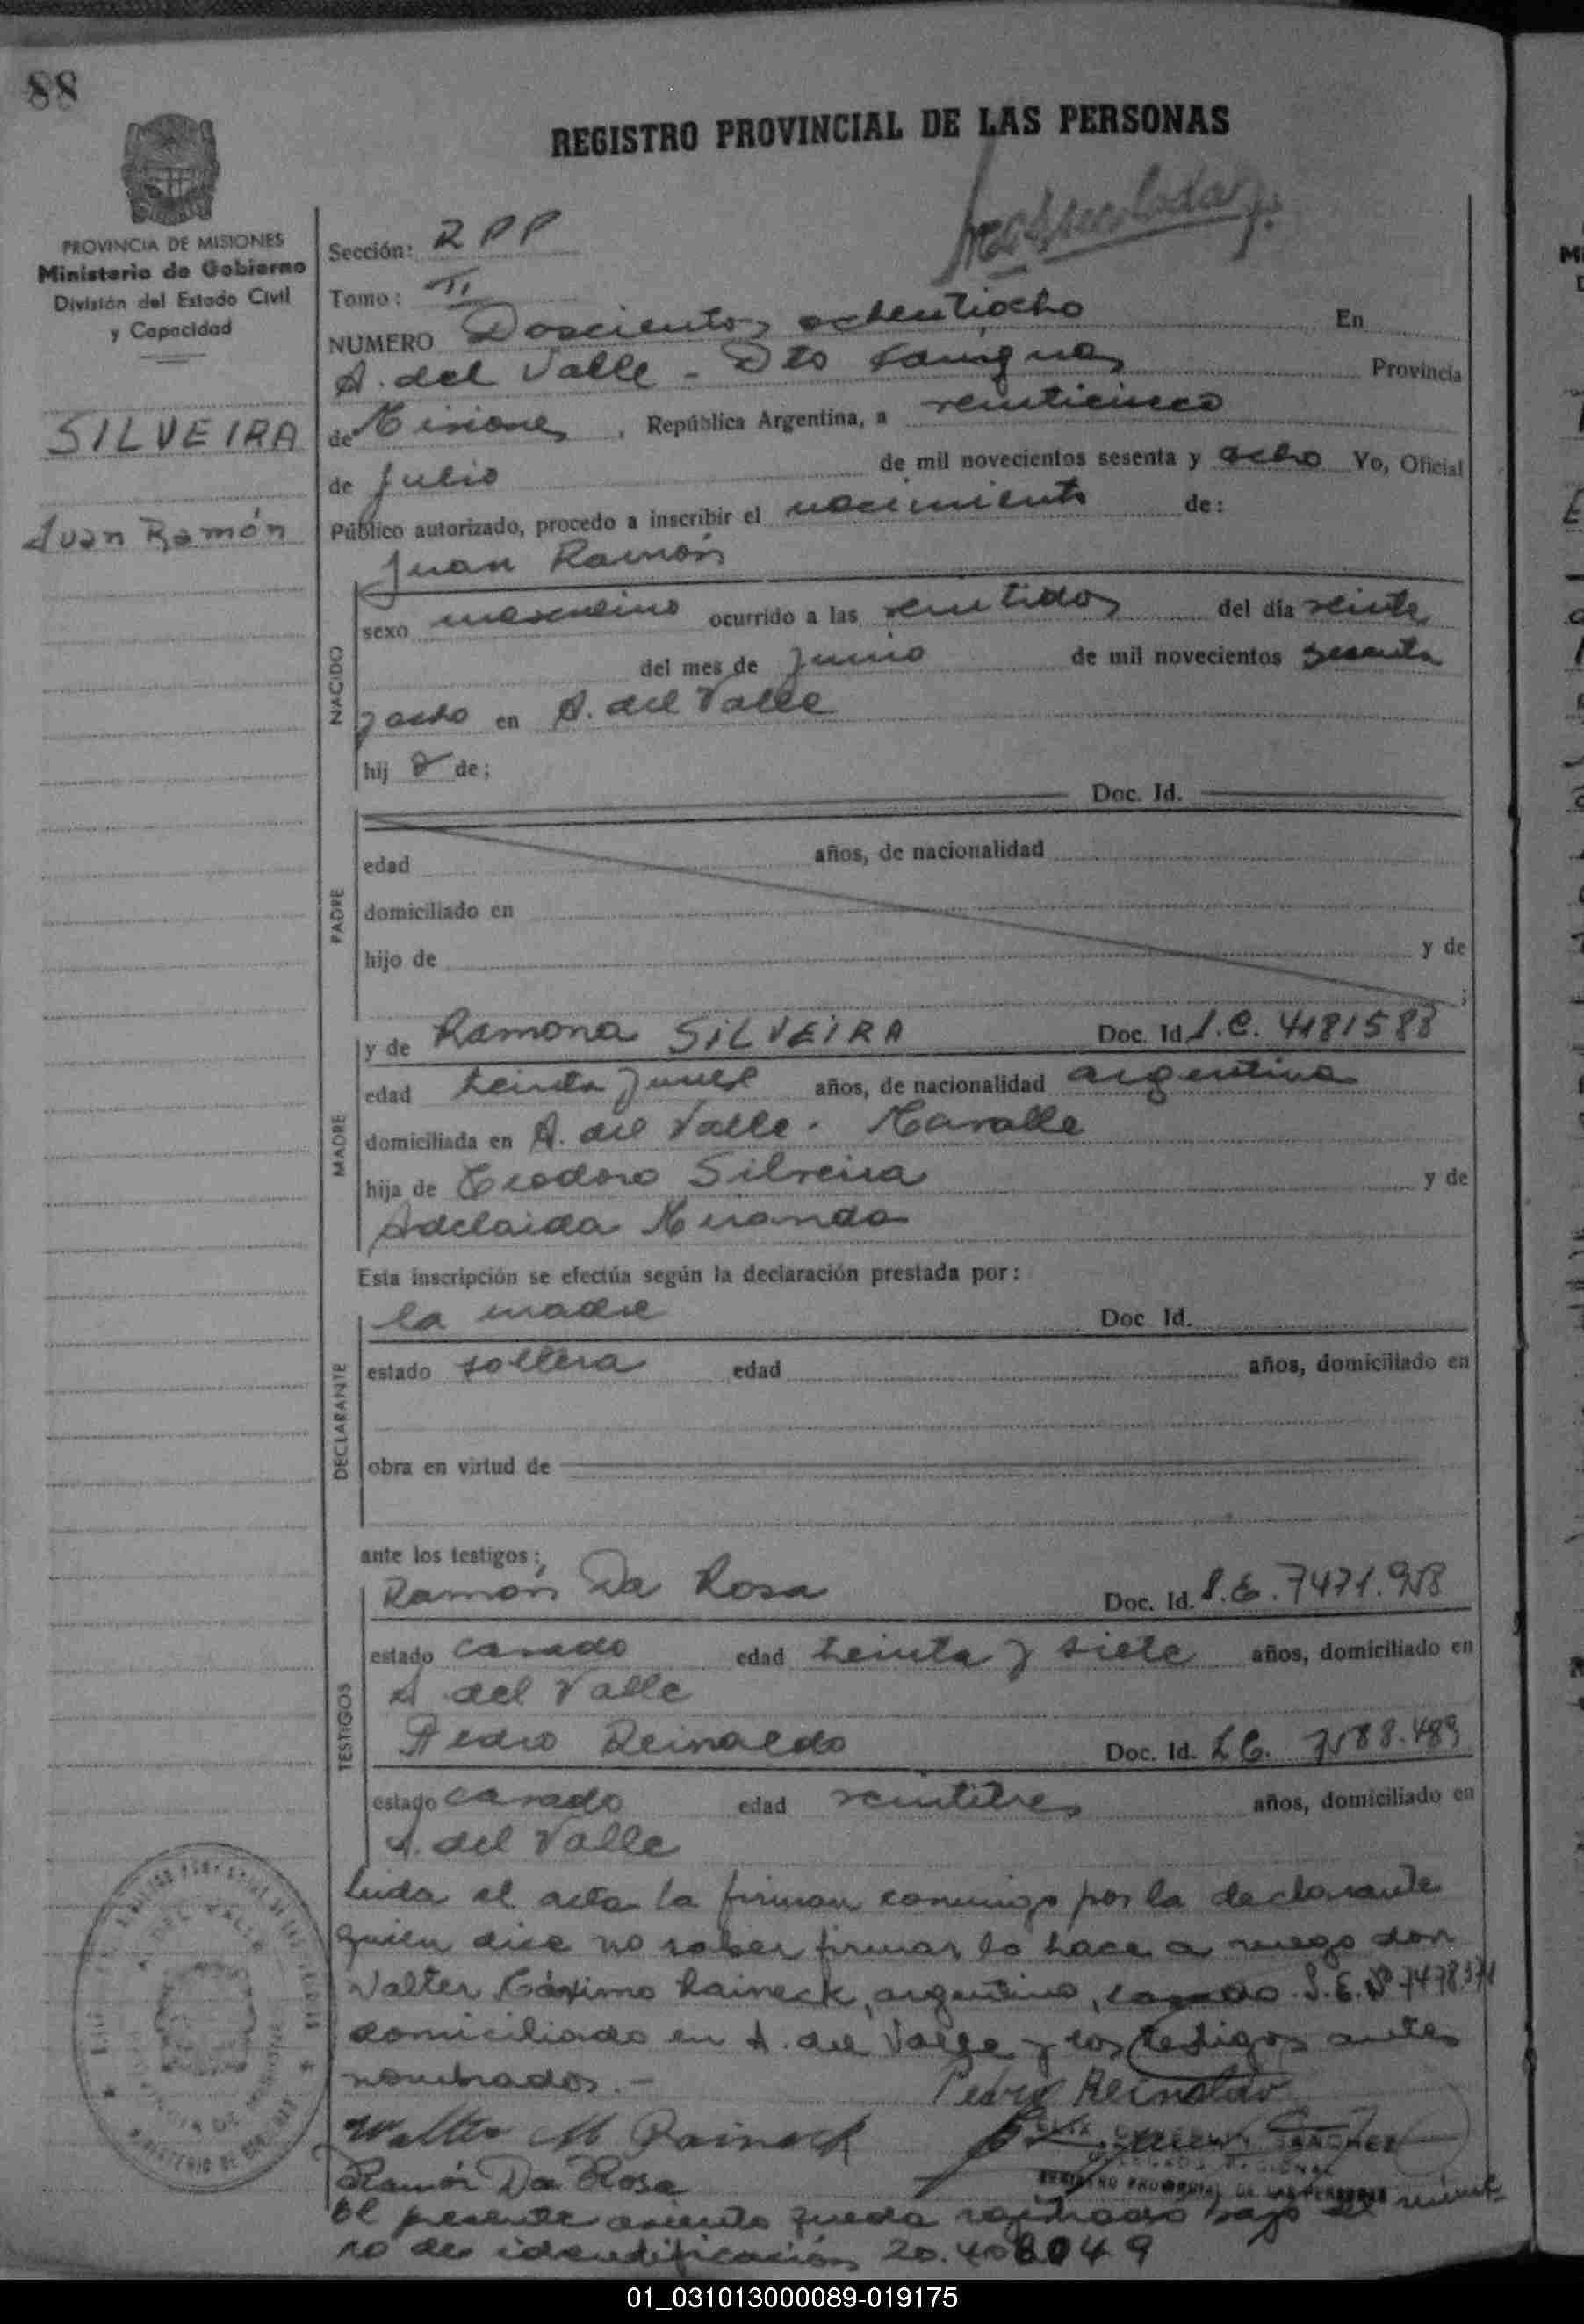 88
REGISTRO PROVINCIAL DE LAS PERSONAS
PROVINCIA DE MISIONES
Ministerio de Gobierno
División del Estado Civil
y Capacidad
SILVEIRA
Juan Ramón
Sección: RPP
Tomo: II
NUMERO Doscientos ochentiocho En
A. del Valle - Dto Cainguas Provincia
de Misiones, República Argentina, a veinticinco
de Julio de mil novecientos sesenta y ocho Yo, Oficial
Público autorizado, procedo a inscribir el nacimiento de:
Juan Ramón
NACIDO
sexo masculino ocurrido a las veintidos del día veinte
del mes de Junio de mil novecientos sesenta
y ocho en A. del Valle
hij o de:
Doc. Id.
PADRE
edad años, de nacionalidad
domiciliado en
hijo de y de
;
MADRE
y de Ramona SILVEIRA Doc. Id L.C. 4181583
edad treinta y nueve años, de nacionalidad argentina
domiciliada en A. del Valle.
hija de Teodoro Silveira y de
Adelaida Miranda
Esta inscripción se efectúa según la declaración prestada por:
la madre Doc. Id.
DECLARANTE
estado soltera edad años, domiciliado en
obra en virtud de
ante los testigos:
TESTIGOS
Ramón Da Rosa Doc. Id. L.E. 7471.958
estado casado edad treinta y siete años, domiciliado en
A. del Valle
Pedro Reinaldo Doc. Id. L.E. 7588.489
estado casado edad veintitres años, domiciliado en
A. del Valle
Leida el acta la firman conmigo por la declarante
quien dice no saber firmar lo hace a ruego don
Walter Máximo Raineck, argentino, casado L.E. Nº 7478.371
domiciliado en A. del Valle y los testigos antes
nombrados.-
Pedro Reinaldo
Walter M Raineck
SANCHEZ
REGISTRO PROVINCIAL DE LAS PERSONAS
Ramón Da Rosa
El presente asiento queda registrado bajo el núme-
ro de identificación 20.408049
01_031013000089-019175